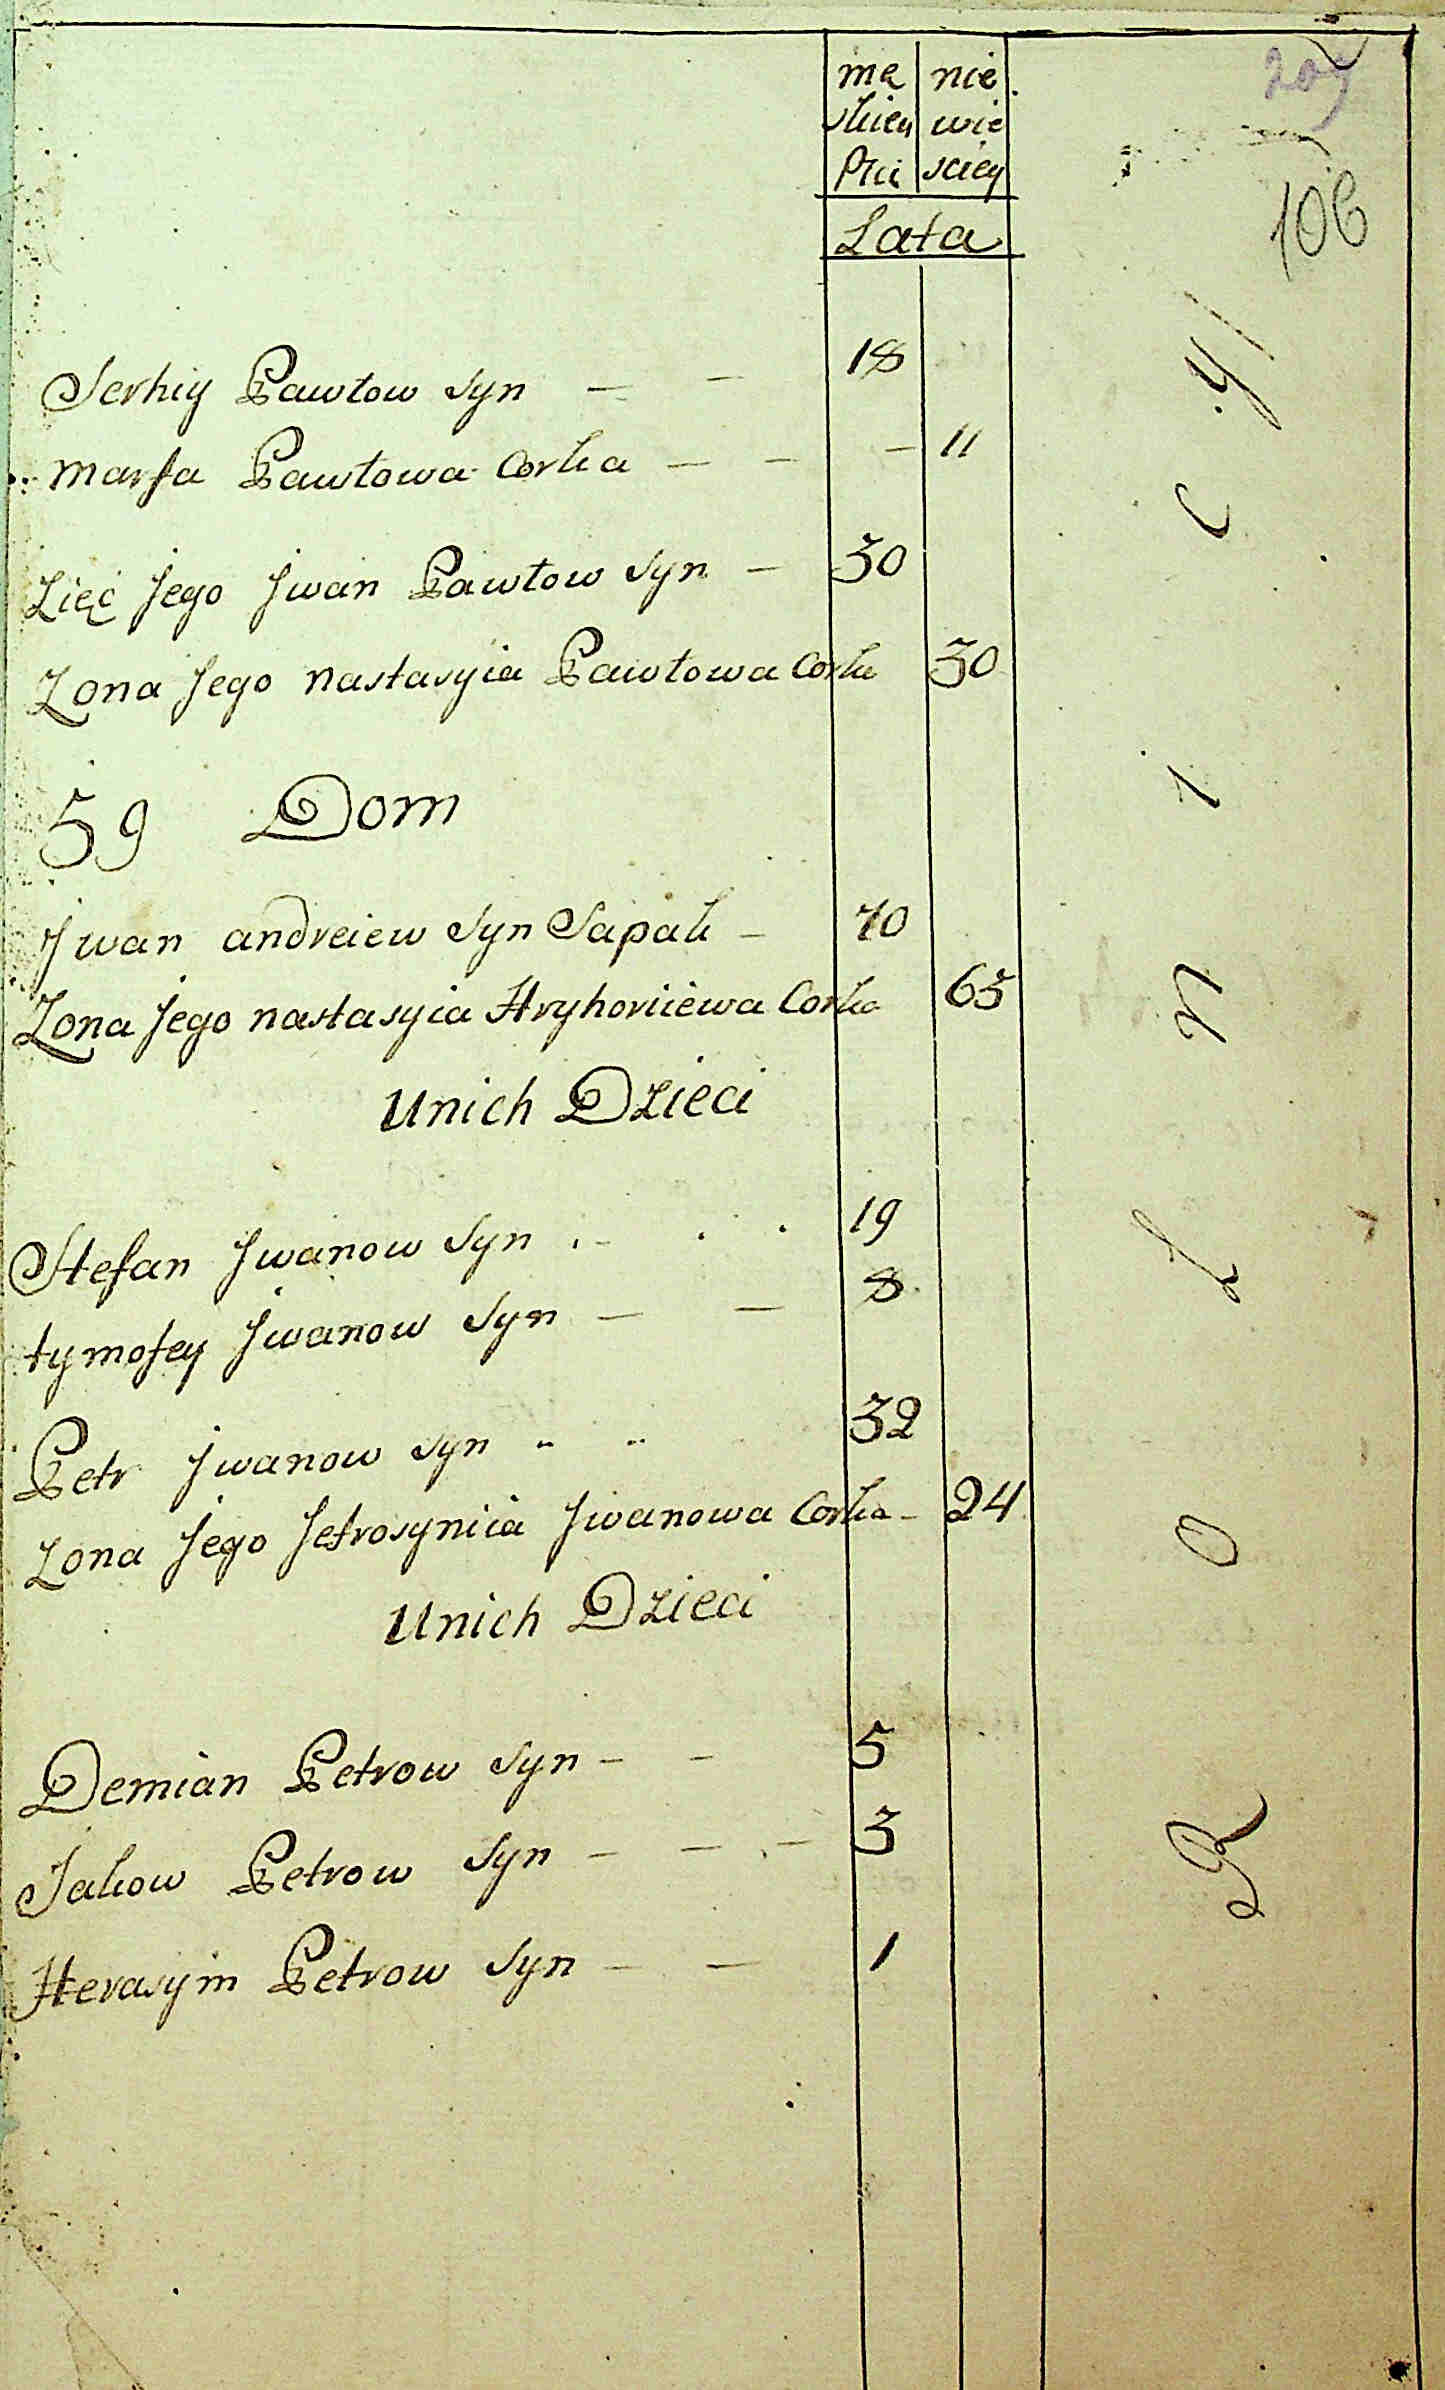 mę nie
skiey wie
Płci sciey
Lata
106
Serhiy Pawłow syn — — 18
marfa Pawłowa Corka — — — 11
Zięć Jego Jwan Pawłow syn — 30
Zona Jego nastasyia Pawłowa Corka 30
59 Dom
Jwan andreiew syn Sapak — 70
Zona Jego nastasyia Hryhoriiewa Corka 65
Unich Dzieci
Stefan Jwanow syn 19
tymofey Jwanow syn — — 8
Petr Jwanow syn 32
Zona Jego Jefrosyniia Jwanowa Corka — 24
Unich Dzieci
Demian Petrow syn — — 5
Jakow Petrow syn — — — 3
Herasym Petrow syn — — 1
Rolnicy